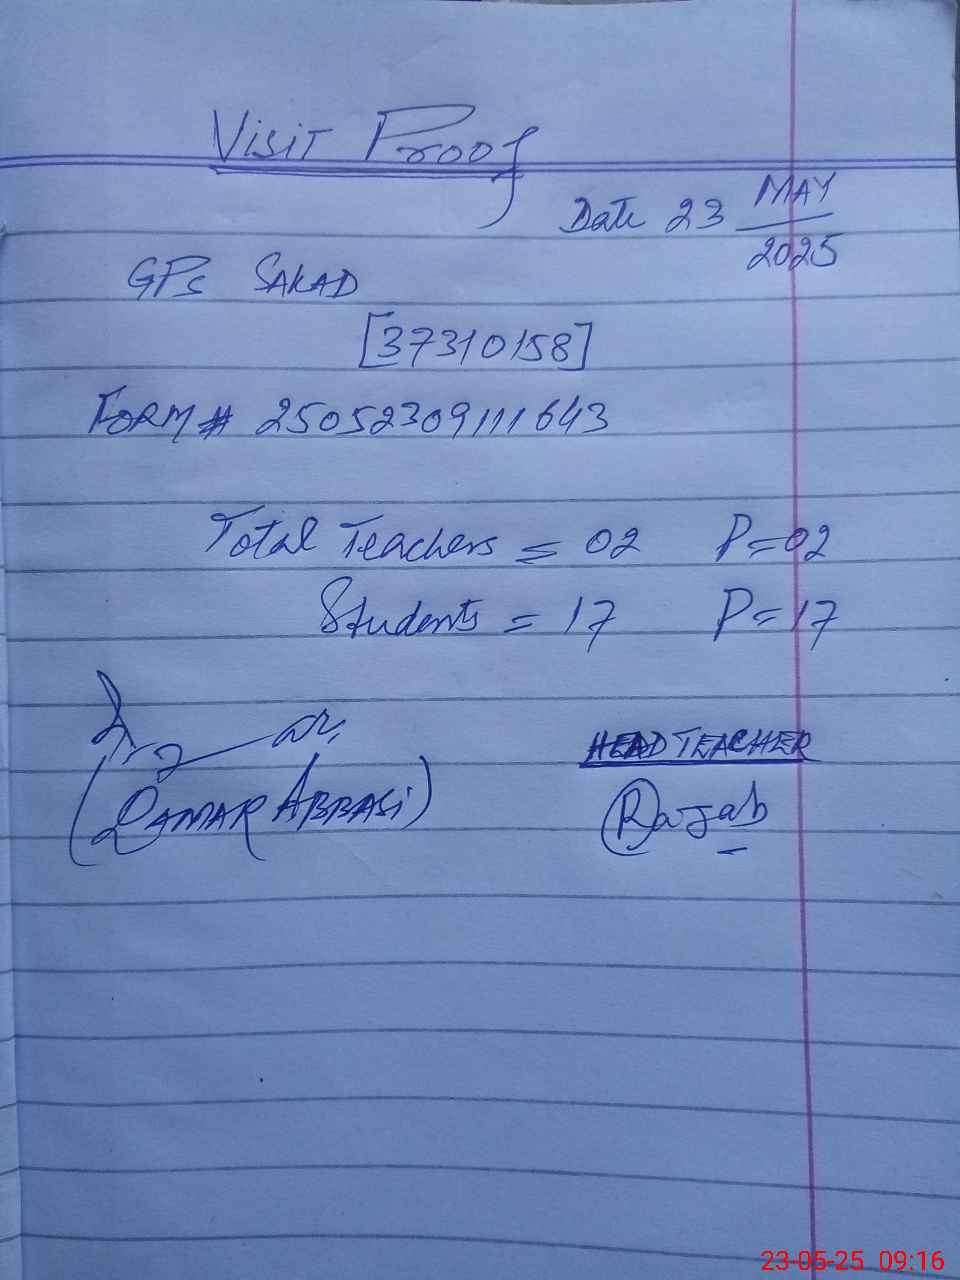 Visit Proof
Date 23 MAY
2025
GPS SAKAD
[37310158]
FORM # 25052309111643
Total Teachers = 02 P=02
Students = 17 P=17
HEAD TEACHER
(QAMAR ABBASI) Rajab
23-05-25 09:16